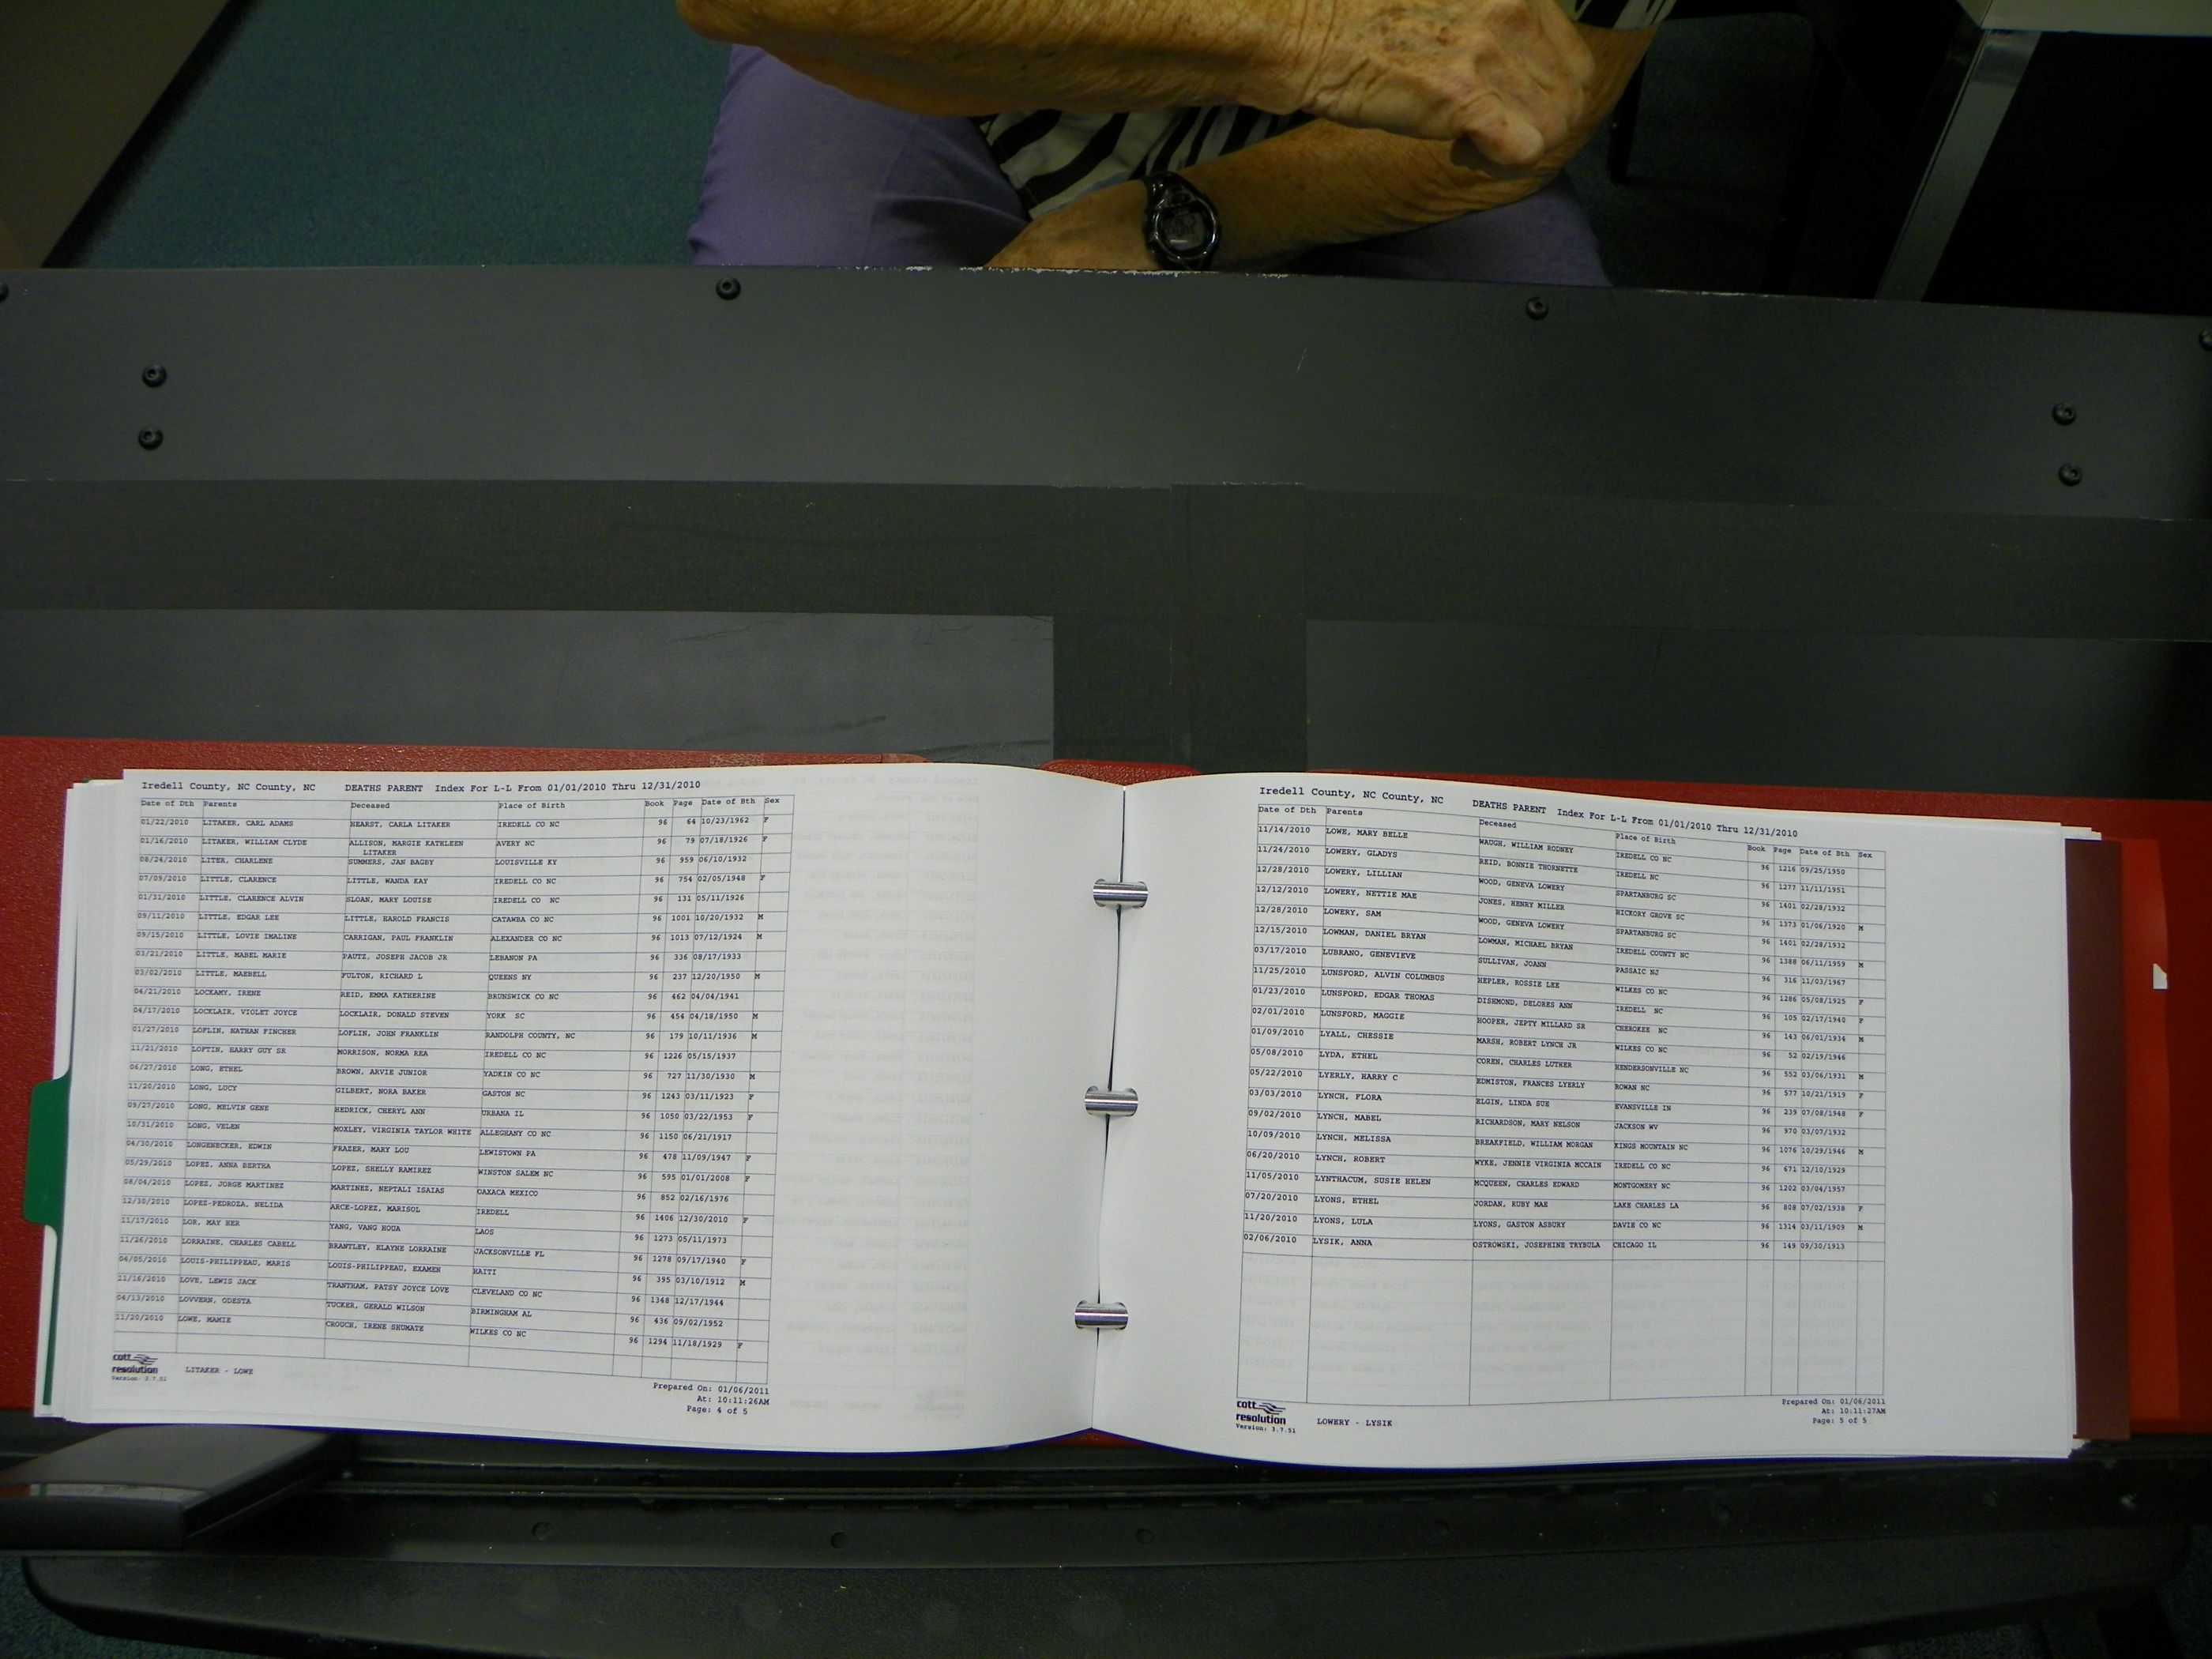 Iredell County, NC County, NC DEATHS PARENT Index For L-L From 01/01/2010 Thru 12/31/2010
Date of Dth Parents Deceased Place of Birth Book Page Date of Bth Sex
01/22/2010 LITAKER, CARL ADAMS HEARST, CARLA LITAKER IREDELL CO NC 96 64 10/23/1962 F
01/16/2010 LITAKER, WILLIAM CLYDE ALLISON, MARGIE KATHLEEN AVERY NC 96 79 07/18/1926 F
LITAKER
08/24/2010 LITER, CHARLENE SUMMERS, JAN BAGBY LOUISVILLE KY 96 959 06/10/1932
07/09/2010 LITTLE, CLARENCE LITTLE, WANDA KAY IREDELL CO NC 96 754 02/05/1948 F
01/31/2010 LITTLE, CLARENCE ALVIN SLOAN, MARY LOUISE IREDELL CO NC 96 131 05/11/1926
09/11/2010 LITTLE, EDGAR LEE LITTLE, HAROLD FRANCIS CATAWBA CO NC 96 1001 10/20/1932 M
09/15/2010 LITTLE, LOVIE IMALINE CARRIGAN, PAUL FRANKLIN ALEXANDER CO NC 96 1013 07/12/1924 M
03/21/2010 LITTLE, MABEL MARIE PAUTZ, JOSEPH JACOB JR LEBANON PA 96 336 08/17/1933
03/02/2010 LITTLE, MAEBELL FULTON, RICHARD L QUEENS NY 96 237 12/20/1950 M
04/21/2010 LOCKAMY, IRENE REID, EMMA KATHERINE BRUNSWICK CO NC 96 462 04/04/1941
04/17/2010 LOCKLAIR, VIOLET JOYCE LOCKLAIR, DONALD STEVEN YORK SC 96 454 04/18/1950 M
01/27/2010 LOFLIN, NATHAN FINCHER LOFLIN, JOHN FRANKLIN RANDOLPH COUNTY, NC 96 179 10/11/1936 M
11/21/2010 LOFTIN, HARRY GUY SR MORRISON, NORMA REA IREDELL CO NC 96 1226 05/15/1937
06/27/2010 LONG, ETHEL BROWN, ARVIE JUNIOR YADKIN CO NC 96 727 11/30/1930 M
11/20/2010 LONG, LUCY GILBERT, NORA BAKER GASTON NC 96 1243 03/11/1923 F
09/27/2010 LONG, MELVIN GENE HEDRICK, CHERYL ANN URBANA IL 96 1050 03/22/1953 F
10/31/2010 LONG, VELEN MOXLEY, VIRGINIA TAYLOR WHITE ALLEGHANY CO NC 96 1150 06/21/1917
04/30/2010 LONGENECKER, EDWIN FRAZER, MARY LOU LEWISTOWN PA 96 478 11/09/1947 F
05/29/2010 LOPEZ, ANNA BERTHA LOPEZ, SHELLY RAMIREZ WINSTON SALEM NC 96 595 01/01/2008 F
08/04/2010 LOPEZ, JORGE MARTINEZ MARTINEZ, NEPTALI ISAIAS OAXACA MEXICO 96 852 02/16/1976
12/30/2010 LOPEZ-PEDROZA, NELIDA ARCE-LOPEZ, MARISOL IREDELL 96 1406 12/30/2010 F
11/17/2010 LOR, MAY HER YANG, VANG HOUA LAOS 96 1273 05/11/1973
11/26/2010 LORRAINE, CHARLES CABELL BRANTLEY, ELAYNE LORRAINE JACKSONVILLE FL 96 1278 09/17/1940 F
04/05/2010 LOUIS-PHILIPPEAU, MARIS LOUIS-PHILIPPEAU, EXAMEN HAITI 96 395 03/10/1912 M
11/16/2010 LOVE, LEWIS JACK TRANTHAM, PATSY JOYCE LOVE CLEVELAND CO NC 96 1348 12/17/1944
04/13/2010 LOVVERN, ODESTA TUCKER, GERALD WILSON BIRMINGHAM AL 96 436 09/02/1952
11/20/2010 LOWE, MAMIE CROUCH, IRENE SHUMATE WILKES CO NC 96 1294 11/18/1929 F
cott
resolution
Version: 3.7.51
LITAKER - LOWE
Prepared On: 01/06/2011
At: 10:11:26AM
Page: 4 of 5
Iredell County, NC County, NC DEATHS PARENT Index For L-L From 01/01/2010 Thru 12/31/2010
Date of Dth Parents Deceased Place of Birth Book Page Date of Bth Sex
11/14/2010 LOWE, MARY BELLE WAUGH, WILLIAM RODNEY IREDELL CO NC 96 1216 09/25/1950
11/24/2010 LOWERY, GLADYS REID, BONNIE THORNETTE IREDELL NC 96 1277 11/11/1951
12/28/2010 LOWERY, LILLIAN WOOD, GENEVA LOWERY SPARTANBURG SC 96 1401 02/28/1932
12/12/2010 LOWERY, NETTIE MAE JONES, HENRY MILLER HICKORY GROVE SC 96 1373 01/06/1920 M
12/28/2010 LOWERY, SAM WOOD, GENEVA LOWERY SPARTANBURG SC 96 1401 02/28/1932
12/15/2010 LOWMAN, DANIEL BRYAN LOWMAN, MICHAEL BRYAN IREDELL COUNTY NC 96 1388 06/11/1959 M
03/17/2010 LUBRANO, GENEVIEVE SULLIVAN, JOANN PASSAIC NJ 96 316 11/03/1967
11/25/2010 LUNSFORD, ALVIN COLUMBUS HEPLER, ROSSIE LEE WILKES CO NC 96 1286 05/08/1925 F
01/23/2010 LUNSFORD, EDGAR THOMAS DISHMOND, DELORES ANN IREDELL NC 96 105 02/17/1940 F
02/01/2010 LUNSFORD, MAGGIE HOOPER, JEPTY MILLARD SR CHEROKEE NC 96 143 06/01/1934 M
01/09/2010 LYALL, CHESSIE MARSH, ROBERT LYNCH JR WILKES CO NC 96 52 02/19/1946
05/08/2010 LYDA, ETHEL COREN, CHARLES LUTHER HENDERSONVILLE NC 96 552 03/06/1931 M
05/22/2010 LYERLY, HARRY C EDMISTON, FRANCES LYERLY ROWAN NC 96 577 10/21/1919 F
03/03/2010 LYNCH, FLORA ELGIN, LINDA SUE EVANSVILLE IN 96 239 07/08/1948 F
09/02/2010 LYNCH, MABEL RICHARDSON, MARY NELSON JACKSON WV 96 970 03/07/1932
10/09/2010 LYNCH, MELISSA BREAKFIELD, WILLIAM MORGAN KINGS MOUNTAIN NC 96 1076 10/29/1946 M
06/20/2010 LYNCH, ROBERT WYKE, JENNIE VIRGINIA MCCAIN IREDELL CO NC 96 671 12/10/1929
11/05/2010 LYNTHACUM, SUSIE HELEN MCQUEEN, CHARLES EDWARD MONTGOMERY NC 96 1202 03/04/1957
07/20/2010 LYONS, ETHEL JORDAN, RUBY MAE LAKE CHARLES LA 96 808 07/02/1938 F
11/20/2010 LYONS, LULA LYONS, GASTON ASBURY DAVIE CO NC 96 1314 03/11/1909 M
02/06/2010 LYSIK, ANNA OSTROWSKI, JOSEPHINE TRYBULA CHICAGO IL 96 149 09/30/1913
cott
resolution
Version: 3.7.51
LOWERY - LYSIK
Prepared On: 01/06/2011
At: 10:11:27AM
Page: 5 of 5